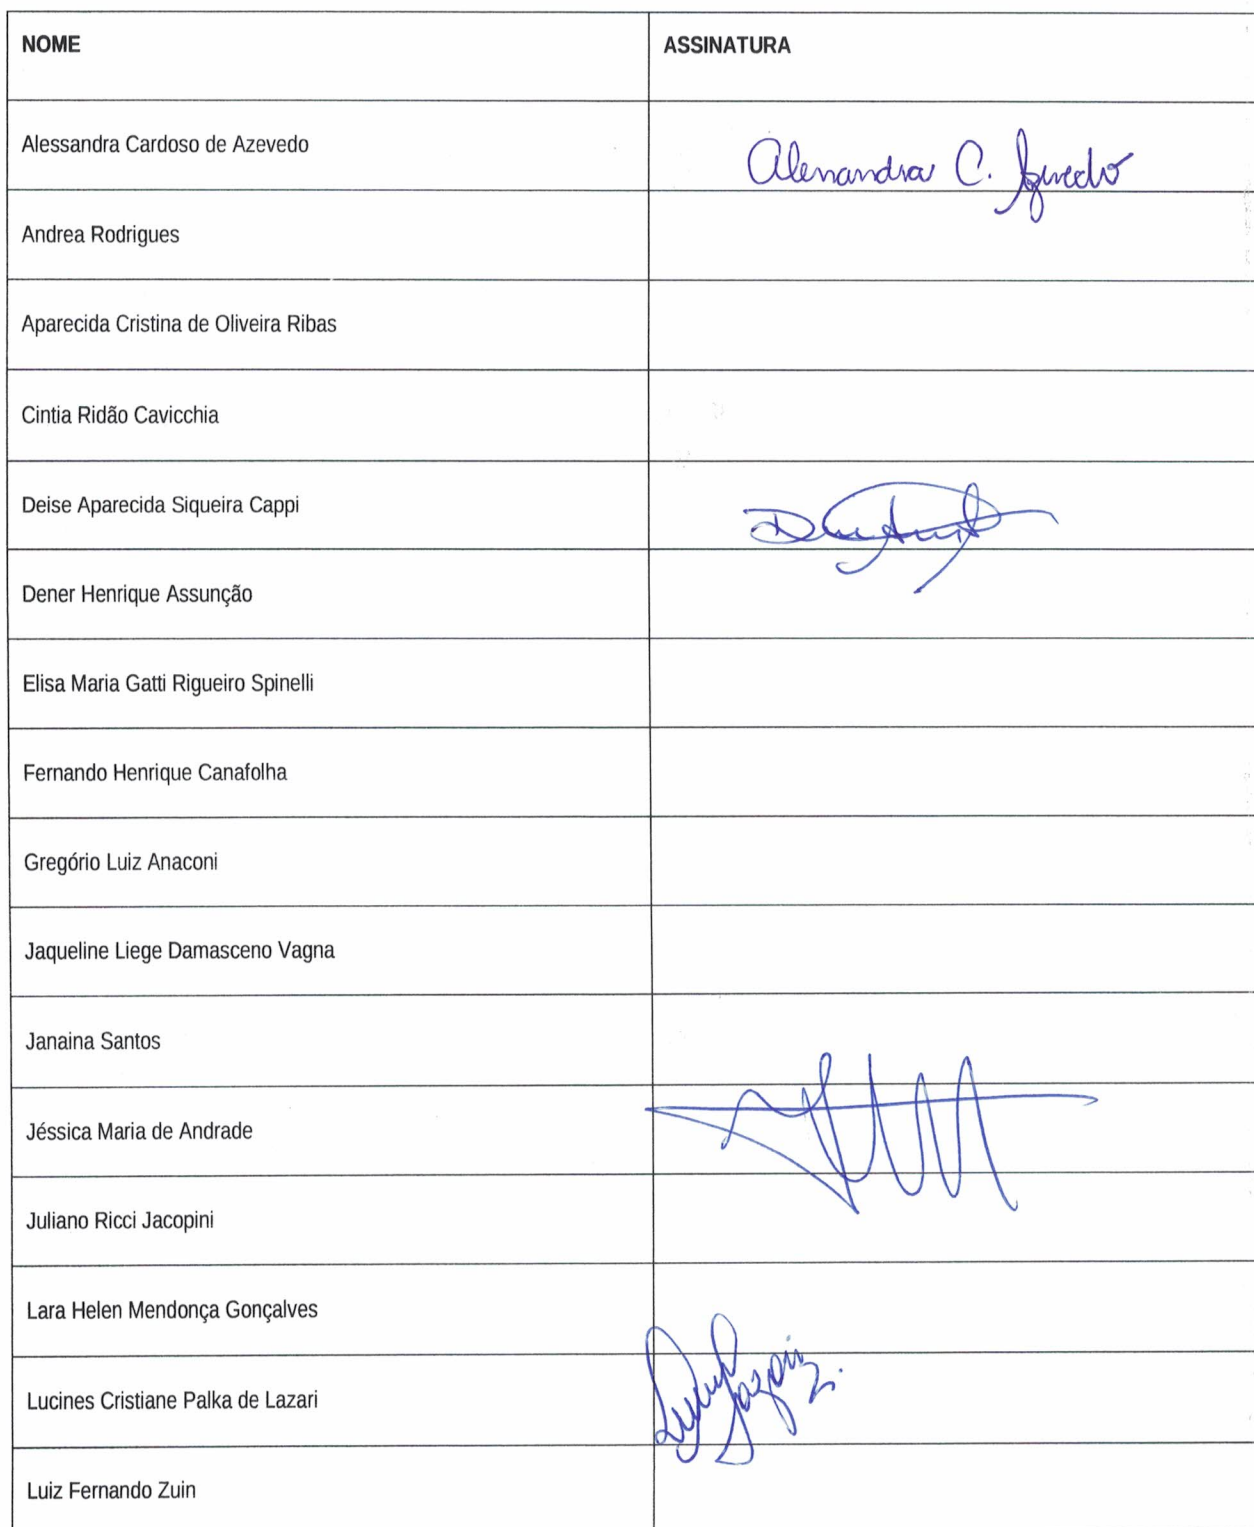 NOME ASSINATURA
Alessandra Cardoso de Azevedo Alessandra C. Azevedo
Andrea Rodrigues
Aparecida Cristina de Oliveira Ribas
Cintia Ridão Cavicchia
Deise Aparecida Siqueira Cappi
Dener Henrique Assunção
Elisa Maria Gatti Rigueiro Spinelli
Fernando Henrique Canafolha
Gregório Luiz Anaconi
Jaqueline Liege Damasceno Vagna
Janaina Santos
Jéssica Maria de Andrade
Juliano Ricci Jacopini
Lara Helen Mendonça Gonçalves
Lucines Cristiane Palka de Lazari
Luiz Fernando Zuin